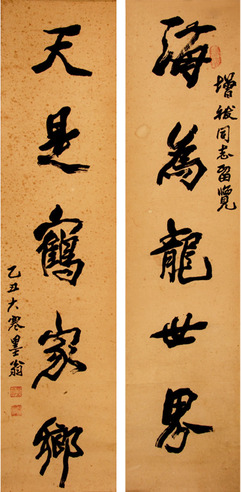 海為龍世界
增祓同志留覽
天是鶴家鄉
乙丑大寒墨翁